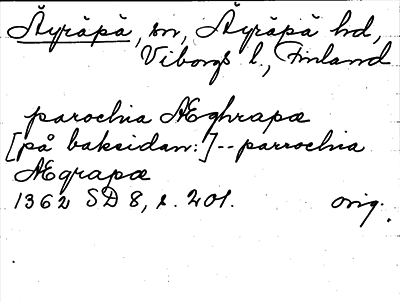 Äyräpä, sn, Äyräpä hd,
Viborgs l., Finland
parochia Æghrapæ
[på baksidan:]--parrochia
Ægrapæ
1362 SD 8, s. 201. orig.